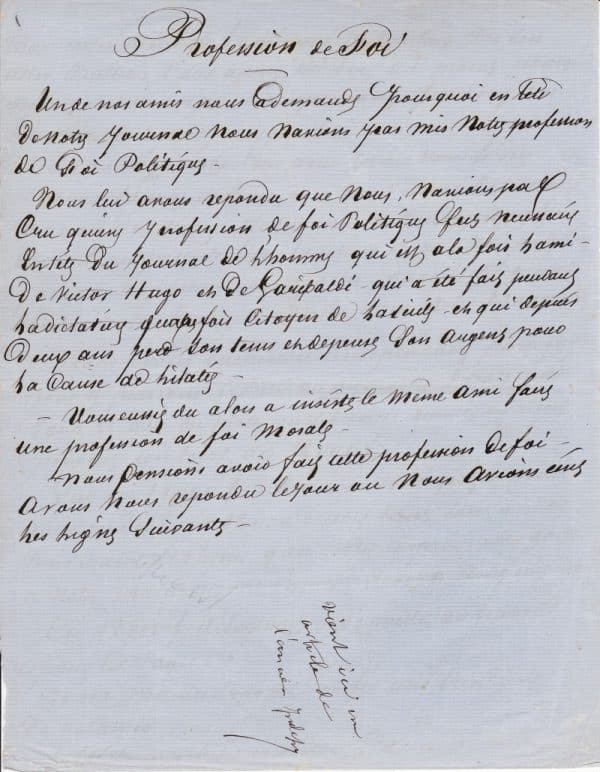 Profession de Foi
Un de nos amis nous a demandé pourquoi en tete
de notre journal nous navions pas mis notre profession
de Foi Politique -
Nous lui avons repondu que nous, navions pas
cru quune profession de foi Politique fut
en tête du journal de l'homme qui est a la fois lami
de Victor Hugo et de Garibaldi - qui a été fait pendant
la dictature fois Citoyen de la - et qui depuis
deux ans perd son tems et depense son argent pour
la cause de litalie -
- alors a insisté le même ami faire
une profession de foi Morale -
nous pensions avoir fait cette profession de foi -
avons nous repondu le jour ou nous avions
les lignes suivantes -
vient ici un
article de
l'ancien